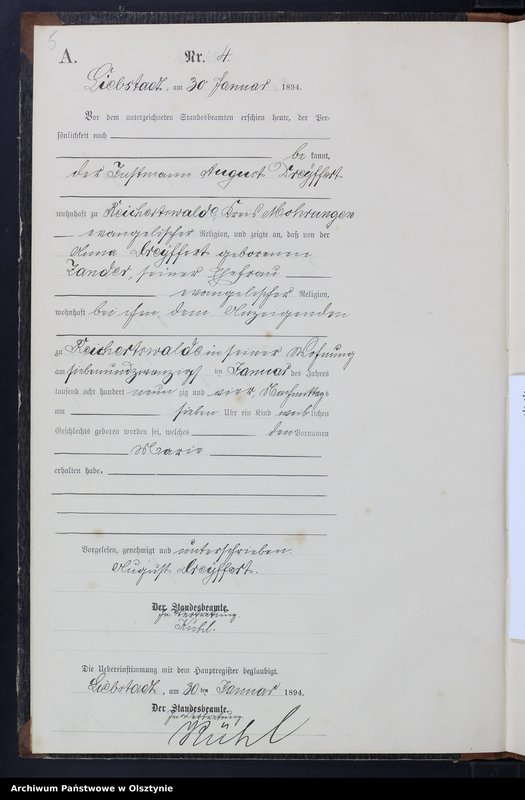 5
A.
Nr. 4.
Liebstadt, am 30 Januar 1894.
Vor dem unterzeichneten Standesbeamten erschien heute, der Per-
sönlichkeit nach
be kannt,
der Instmann August Dreyffert
wohnhaft zu Reichertswalde, Kreis Mohrungen
evangelischer Religion, und zeigte an, daß von der
Anna Dreyffert geborenen
Zander, seiner Ehefrau
evangelischer Religion,
wohnhaft bei ihm, dem Anzeigenden
zu Reichertswalde in seiner Wohnung
am siebenundzwanzigsten Januar des Jahres
tausend acht hundert neun zig und vier Nachmittags
um sieben Uhr ein Kind weiblichen
Geschlechts geboren worden sei, welches den Vornamen
Marie
erhalten habe.
Vorgelesen, genehmigt und unterschrieben.
August Dreyffert.
Der Standesbeamte.
In Vertretung.
Kühl.
Die Uebereinstimmung mit dem Hauptregister beglaubigt.
Liebstadt, am 30ten Januar 1894.
Der Standesbeamte.
In Vertretung.
Kühl
Archiwum Państwowe w Olsztynie